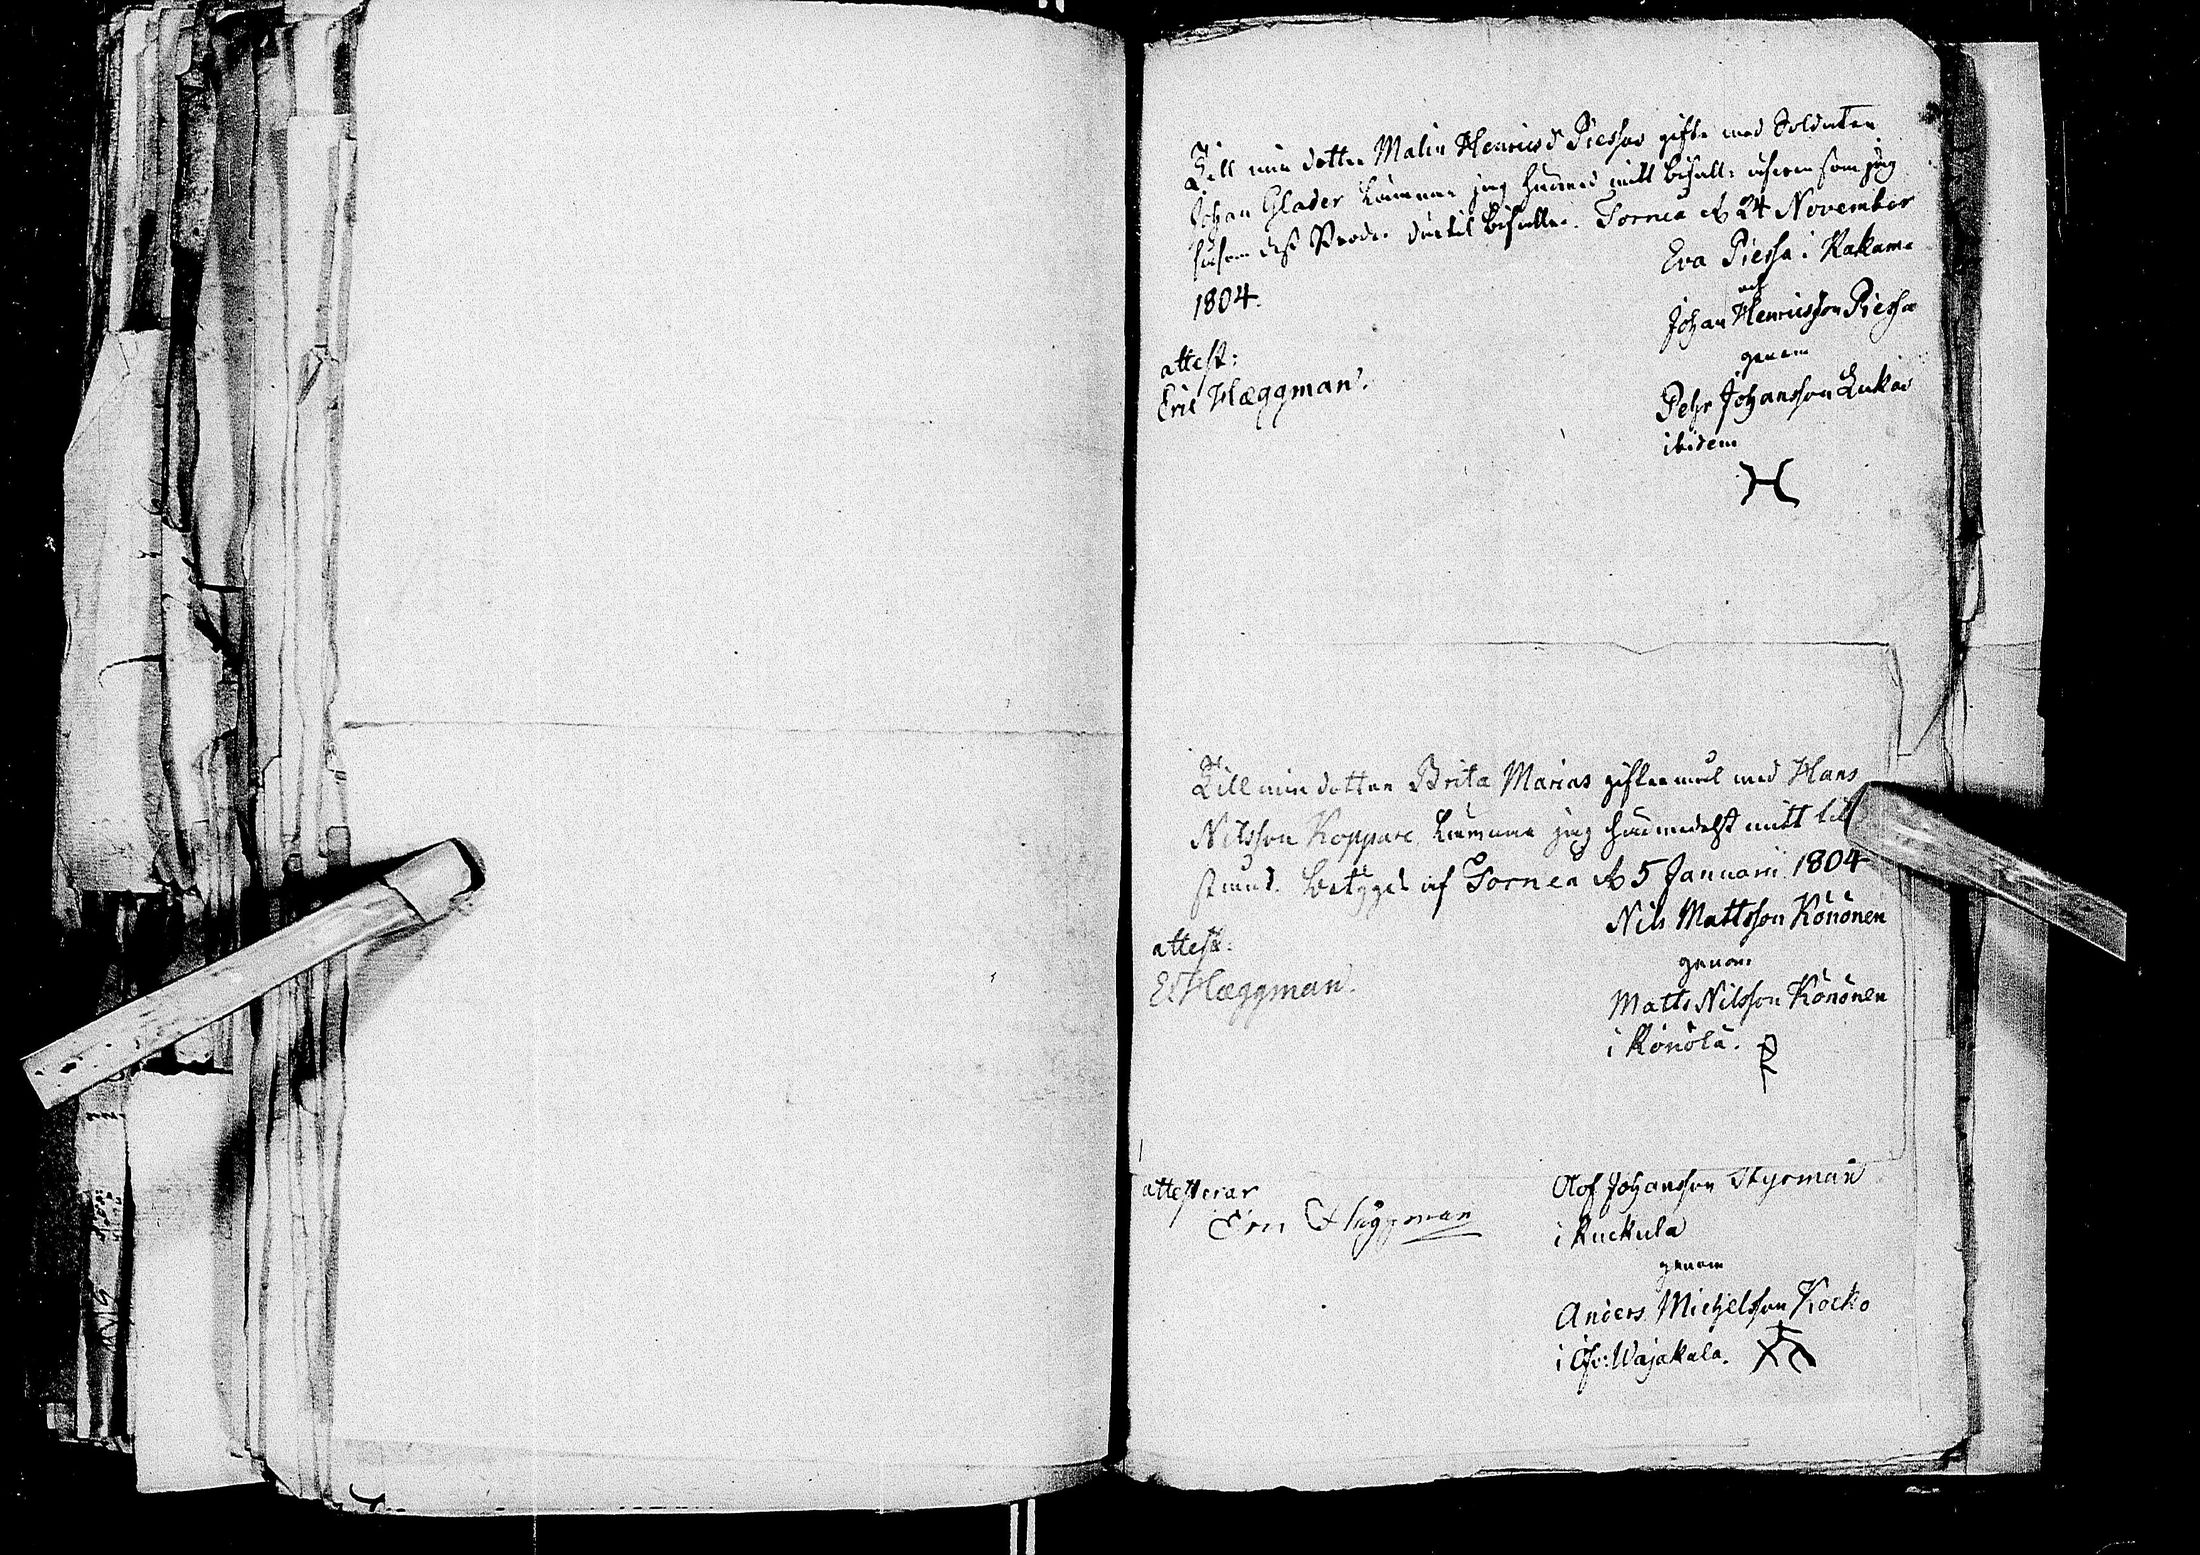 Till min dotter Malin Henricsd. Piessas gifte med Soldaten
Johan Glader lämnar jag härmed mitt bifall, äfven som jag
såsom dess Broder dertil bifaller. Torneå d. 24 November
1804.
Eva Piessa i Kakama
och
Johan Henricsson Piessa
genom
Pehr Johansson Lukas
ibidem
attest:
Eric Hæggman.
Till min dotter Brita Marias giftermål med Hans
Nilsson Koppare lämnar jag härmedelst mitt till
stånd. betygas af Torneå d. 5 Januarii 1804
Nils Mattsson Könönen
genom
Matts Nilsson Könönen
i Könölä.
attest:
E. Hæggman.
attesterar
Eric Häggman
Olof Johansson Styrman
i Kuckula
genom
Anders Michelsson Kocko
i Öfv: Wojakala.